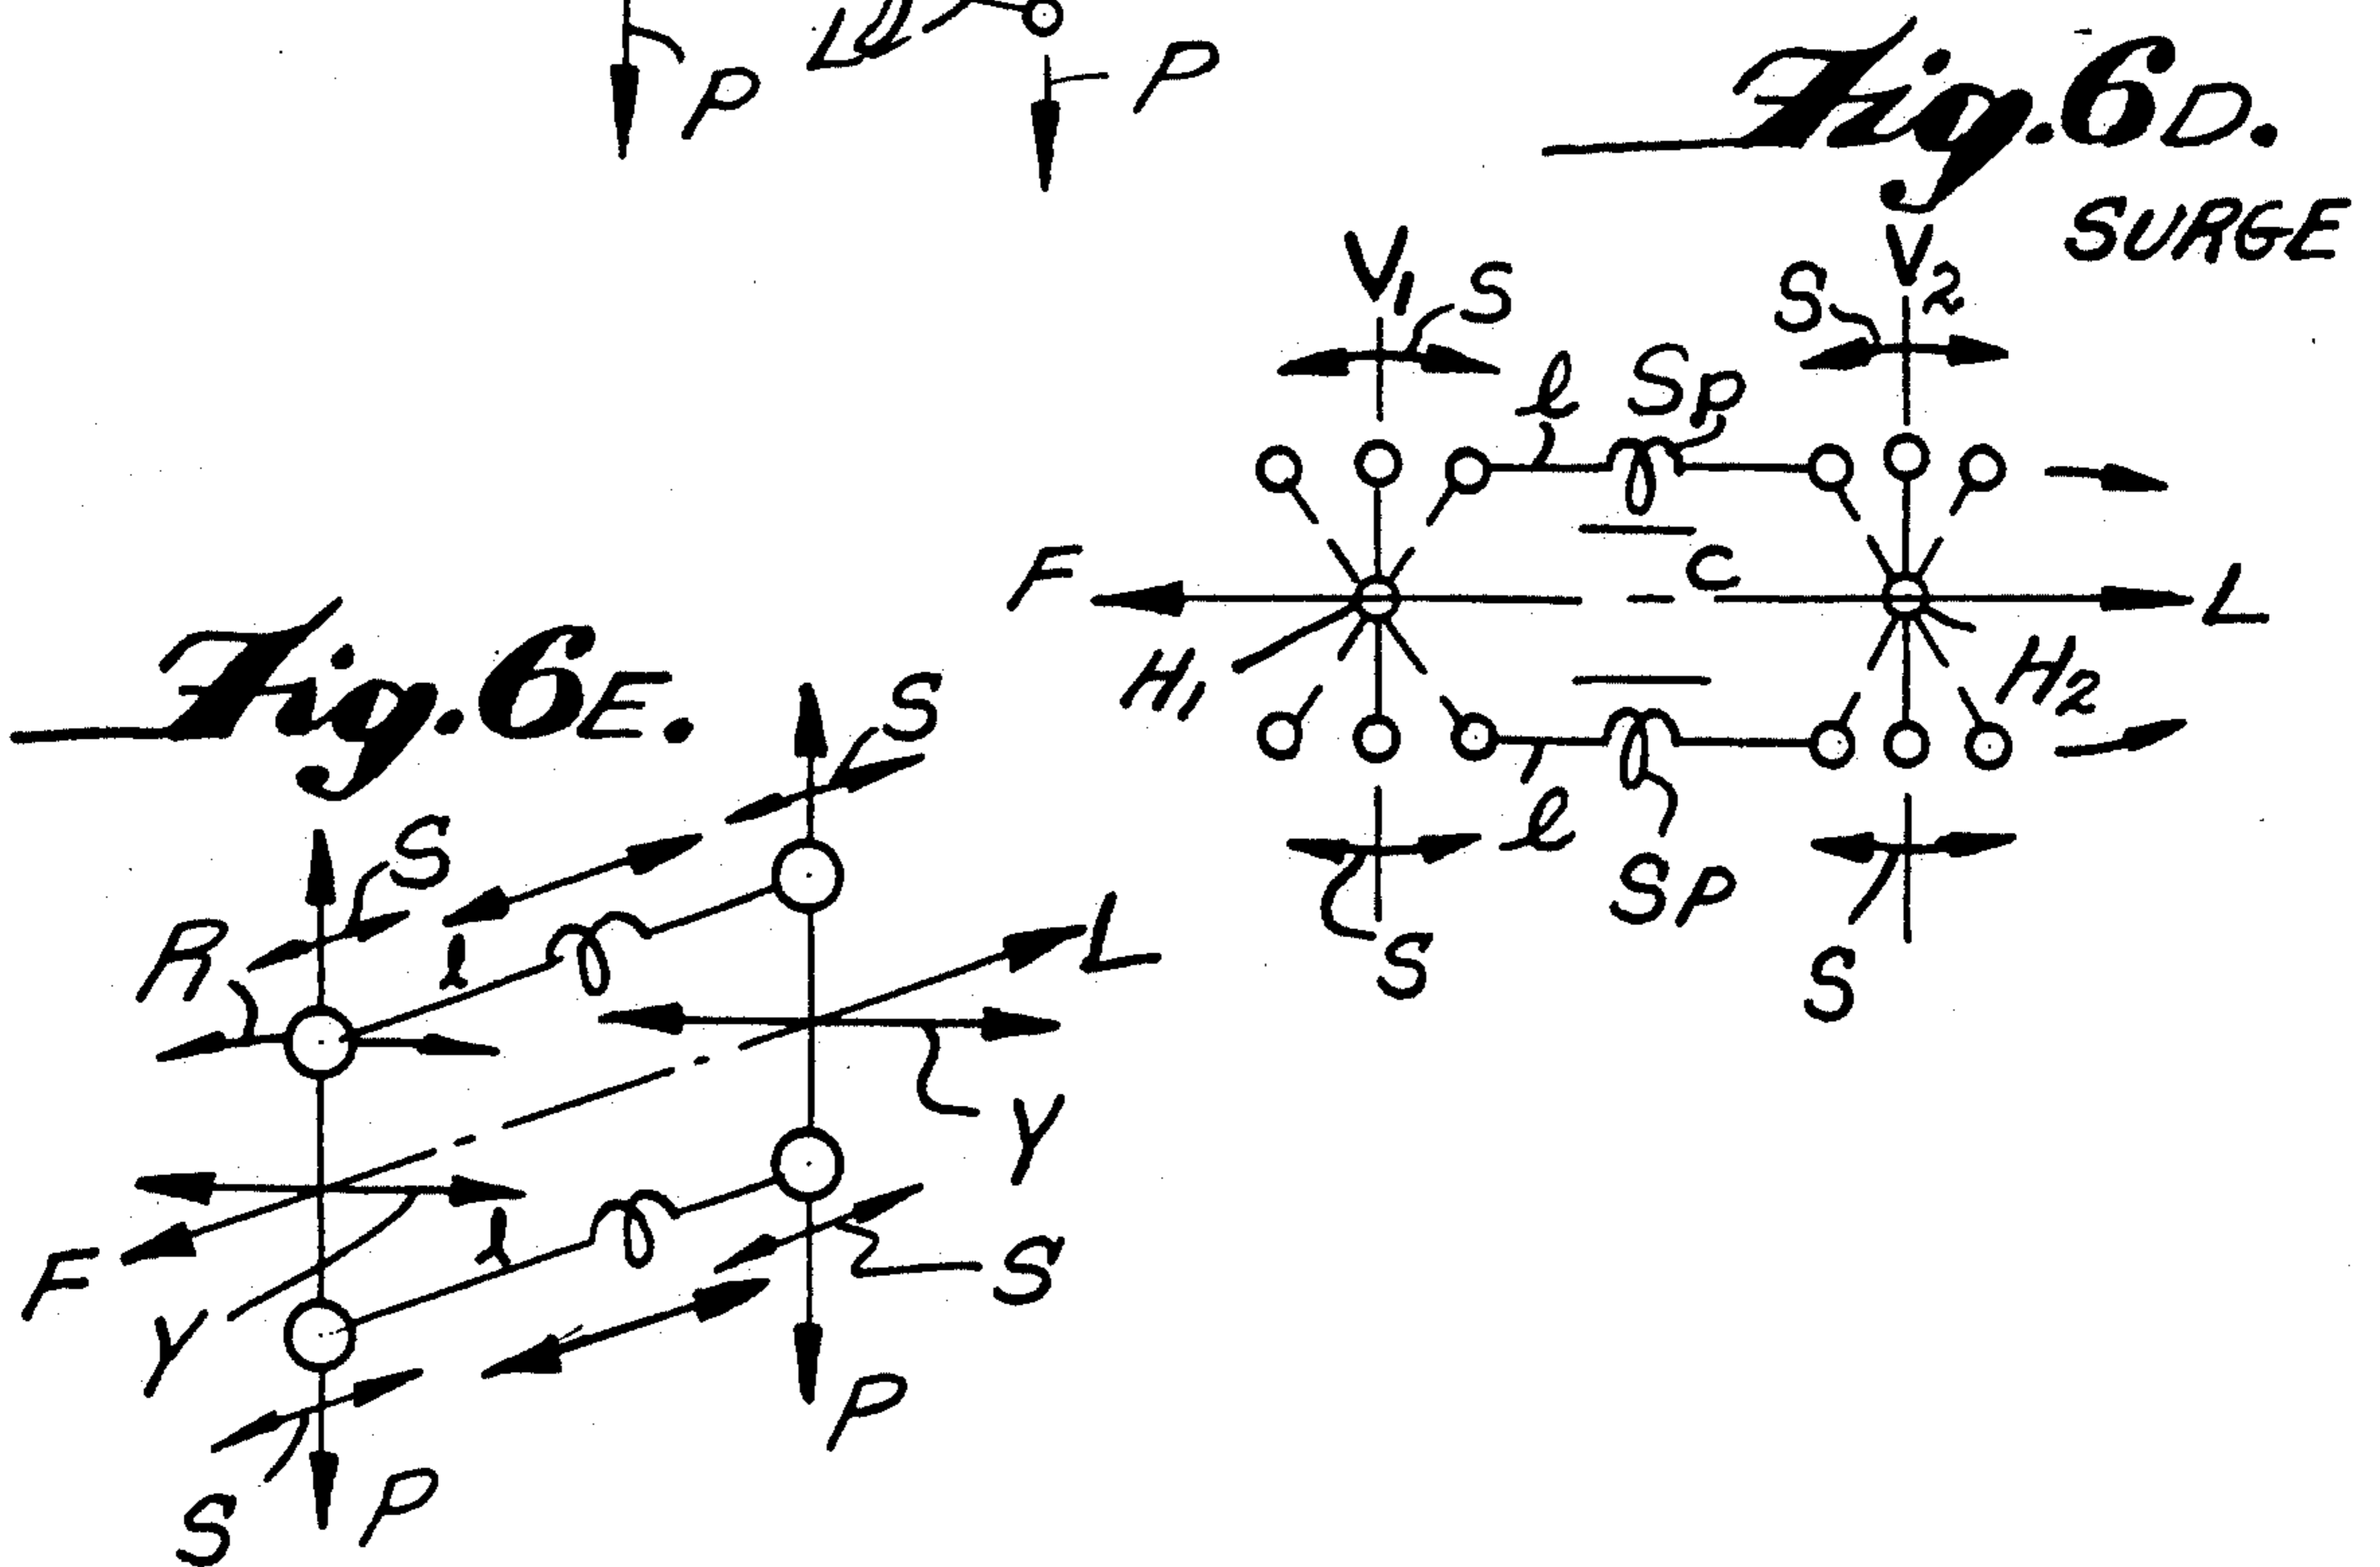 P
P
Fig. 6D.
SURGE
V1
S
S
V2
l
Sp
F
C
L
H1
H2
l
Sp
S
S
Fig. 6E.
S
S
R
l
L
Y
F
l
Y
S
P
P
S